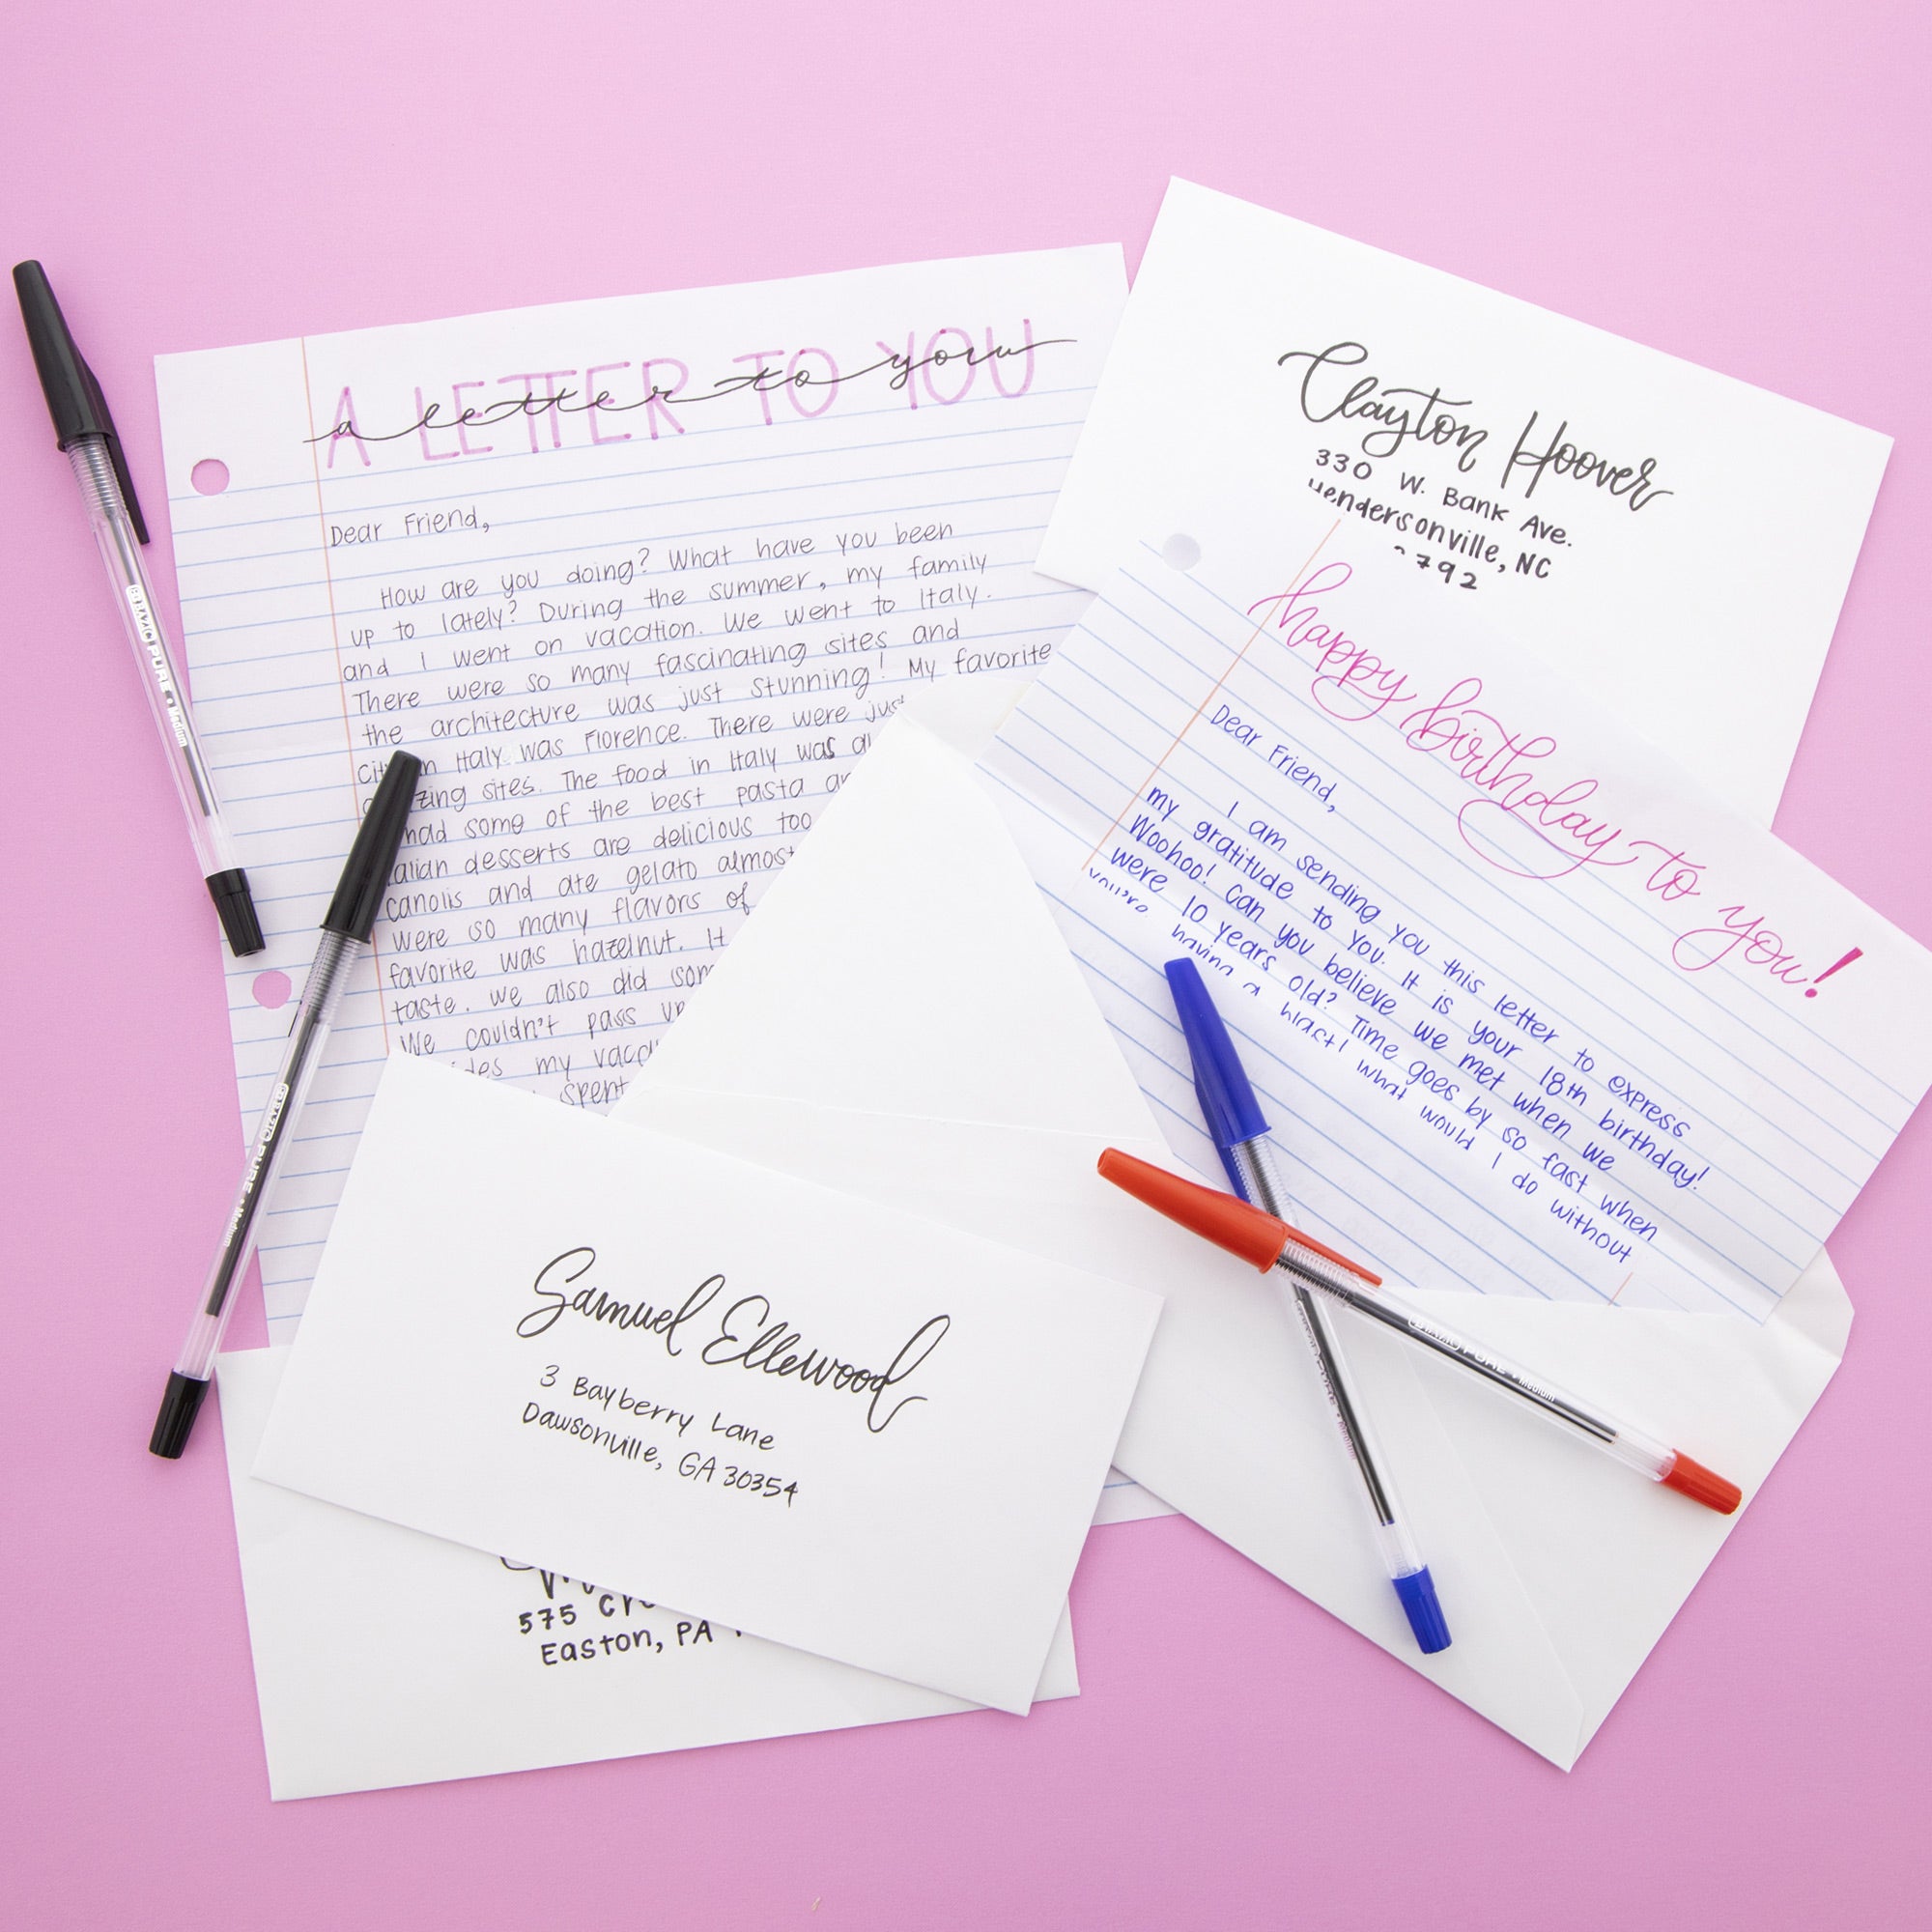 A LETTER TO YOU
a letter to you
Dear Friend,
How are you doing? What have you been
up to lately? During the summer, my family
and I went on vacation. We went to Italy.
There were so many fascinating sites and
the architecture was just stunning! My favorite
in Italy was Florence. There were just
sites. The food in Italy was
had some of the best pasta
desserts are delicious too
canolis and ate gelato almost
were so many flavors of
favorite was hazelnut. It
taste. We also did som
We couldn't pass up
my
spent
Clayton Hoover
330 W. Bank Ave.
Hendersonville, NC
792
happy birthday to you!
Dear Friend,
I am sending you this letter to express
my gratitude to you. It is your 18th birthday!
Woohoo! Can you believe we met when we
were 10 years old? Time goes by so fast when
you're having a blast! What would I do without
Samuel Ellewood
3 Bayberry Lane
Dawsonville, GA 30354
575
Easton, PA
BAZIC PURE • Medium
BAZIC PURE • Medium
BAZIC PURE • Medium